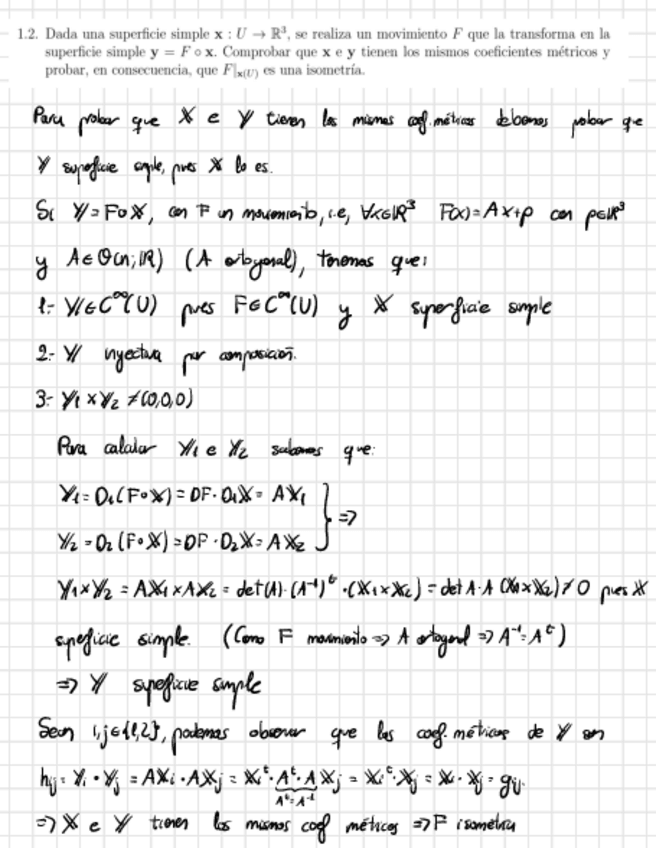 1.2. Dada una superficie simple x : U → ℝ³, se realiza un movimiento F que la transforma en la
superficie simple y = F ∘ x. Comprobar que x e y tienen los mismos coeficientes métricos y
probar, en consecuencia, que F|x(U) es una isometría.
Para probar que 𝕏 e 𝕐 tienen los mismos coef. métricos debemos probar que
𝕐 superficie simple, pues 𝕏 lo es.
Si 𝕐 = F∘𝕏, con F un movimiento, i.e, ∀x∈ℝ³ F(x) = Ax+p con p∈ℝ³
y A∈O(n;ℝ) (A ortogonal), tenemos que:
1.- 𝕐∈C^∞(U) pues F∈C^∞(U) y 𝕏 superficie simple
2.- 𝕐 inyectiva por composición.
3.- 𝕐₁ × 𝕐₂ ≠ (0,0,0)
Para calcular 𝕐₁ e 𝕐₂ sabemos que:
𝕐₁ = D₁(F∘𝕏) = DF · D₁𝕏 = A𝕏₁ } ⇒
𝕐₂ = D₂(F∘𝕏) = DF · D₂𝕏 = A𝕏₂
𝕐₁×𝕐₂ = A𝕏₁ × A𝕏₂ = det(A) · (A⁻¹)ᵗ · (𝕏₁×𝕏₂) = det A · A (𝕏₁×𝕏₂) ≠ 0 pues 𝕏
superficie simple. (Como F movimiento ⇒ A ortogonal ⇒ A⁻¹ = Aᵗ)
⇒ 𝕐 superficie simple
Sean i,j∈{1,2}, podemos observar que los coef. métricos de 𝕐 son
hᵢⱼ = 𝕐ᵢ · 𝕐ⱼ = A𝕏ᵢ · A𝕏ⱼ = 𝕏ᵢᵗ · Aᵗ · A 𝕏ⱼ = 𝕏ᵢᵗ · 𝕏ⱼ = 𝕏ᵢ · 𝕏ⱼ = gᵢⱼ.
Aᵗ = A⁻¹
⇒ 𝕏 e 𝕐 tienen los mismos coef métricos ⇒ F isometría